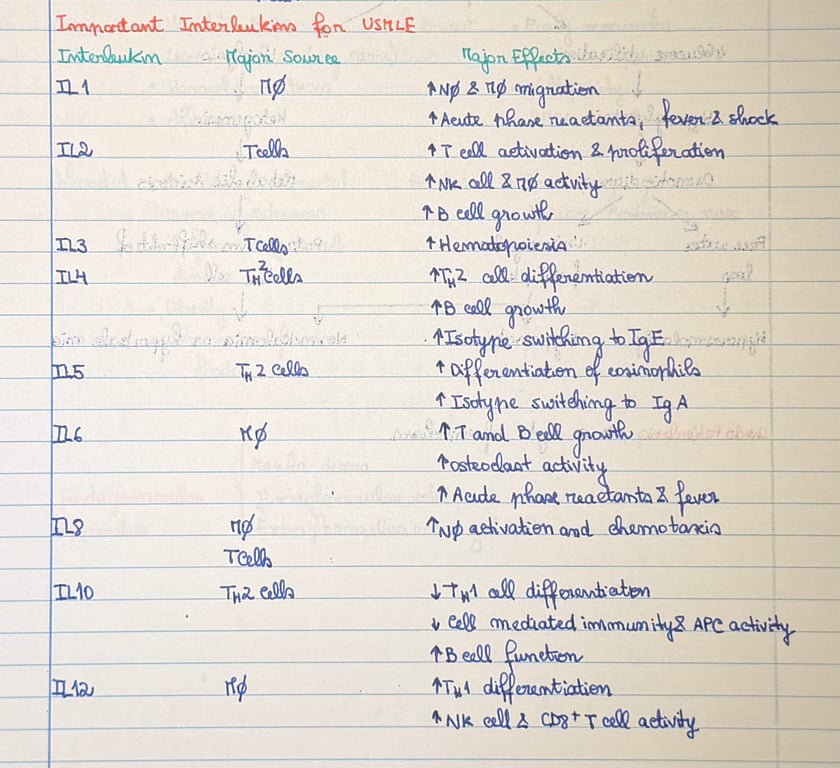 Important Interleukins for USMLE
Interleukin Major Source Major Effects
IL1 MØ ↑NØ & MØ migration
↑Acute phase reactants, fever & shock
IL2 Tcells ↑T cell activation & proliferation
↑NK cell & MØ activity
↑B cell growth
IL3 Tcells ↑Hematopoiesis
IL4 TH2 cells ↑TH2 cell differentiation
↑B cell growth
↑Isotype switching to IgE
IL5 TH2 cells ↑Differentiation of eosinophils
↑Isotype switching to IgA
IL6 MØ ↑T and B cell growth
↑osteoclast activity
↑Acute phase reactants & fever
IL8 MØ ↑NØ activation and chemotaxis
TCells
IL10 TH2 cells ↓TH1 cell differentiation
↓ Cell mediated immunity & APC activity
↑B cell function
IL12 MØ ↑TH1 differentiation
↑NK cell & CD8+ T cell activity